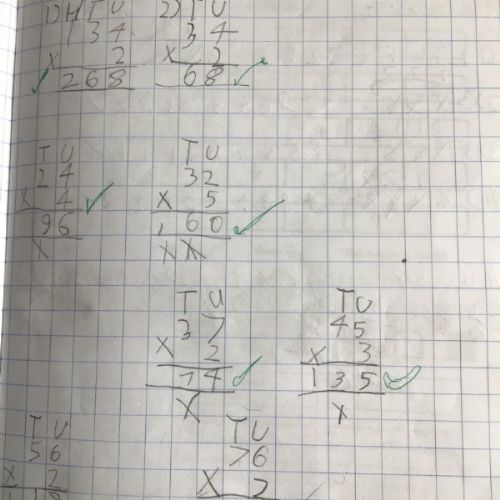 1) H T U 2) T U
1 3 4 3 4
x 2 x 2
2 6 8 6 8
T U T U
2 4 3 2
x 4 x 5
9 6 1 6 0
x x x
T U T U
3 7 4 5
x 2 x 3
7 4 1 3 5
x x
T U T U
5 6 7 6
x 2 x 2